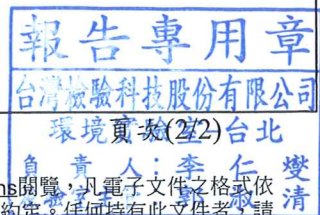 報告專用章
台灣檢驗科技股份有限公司
環境實驗室-台北
頁次(2/2)
負責人：李仁燮
ns閱覽，凡電子文件之格式依
約定。任何持有此文件者，請